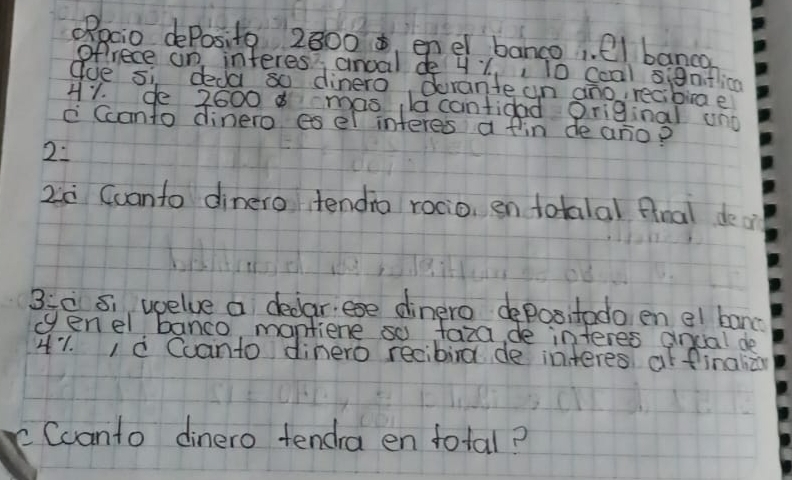 Rocio deposito 2600 $ en el banco 1. El banco
Ofrece un interes anual de 4%, lo cual significa
que si deda so dinero durante un año, recibira el
4% de 2600 $ mas la cantidad original uno
¿Cuanto dinero es el interes a fin de año?
2:
2¿ Cuanto dinero tendra rocio en totalal final de
3:¿ si vuelve a dedar ese dinero depositado en el banc
y en el banco mantiene so taza de interes anual de
4%, ¿ Cuanto dinero recibira de interes al finalizar
¿Cuanto dinero tendra en total?